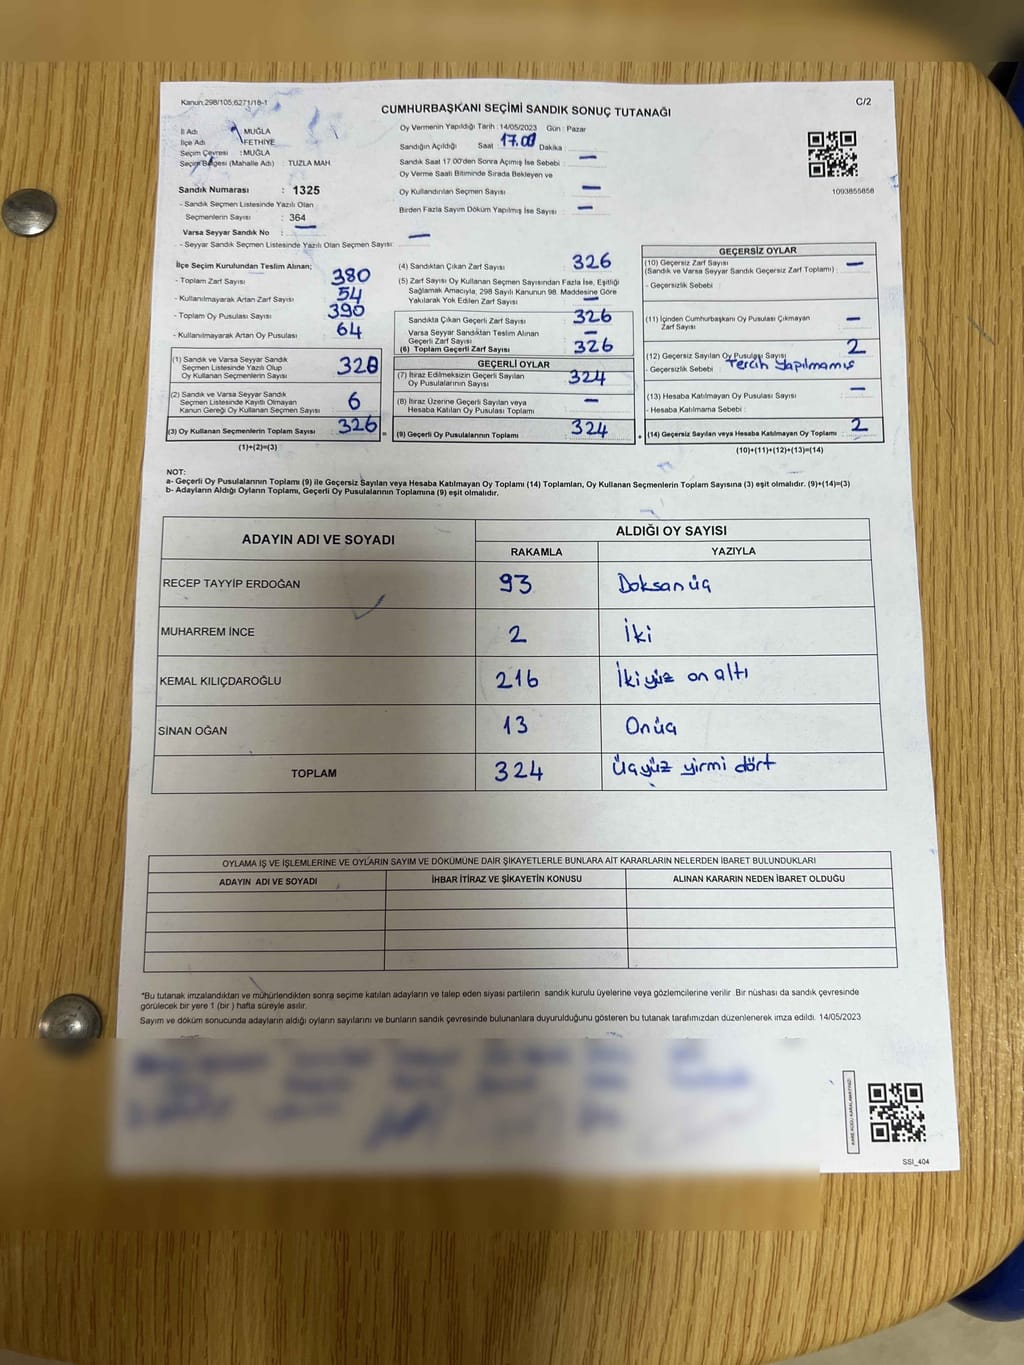 Kanun:298/105,6271/18-1
C/2
CUMHURBAŞKANI SEÇİMİ SANDIK SONUÇ TUTANAĞI
İl Adı : MUĞLA
İlçe Adı : FETHİYE
Seçim Çevresi : MUĞLA
Seçim Bölgesi (Mahalle Adı) : TUZLA MAH.
Sandık Numarası : 1325
- Sandık Seçmen Listesinde Yazılı Olan
Seçmenlerin Sayısı : 364
Varsa Seyyar Sandık No : —
- Seyyar Sandık Seçmen Listesinde Yazılı Olan Seçmen Sayısı: —
Oy Vermenin Yapıldığı Tarih : 14/05/2023 Gün : Pazar
Sandığın Açıldığı Saat 17.00 Dakika
Sandık Saat 17.00'den Sonra Açımış İse Sebebi : —
Oy Verme Saati Bitiminde Sırada Bekleyen ve
Oy Kullandırılan Seçmen Sayısı —
Birden Fazla Sayım Döküm Yapılmış İse Sayısı : —
1093855858
İlçe Seçim Kurulundan Teslim Alınan;
- Toplam Zarf Sayısı : 380
- Kullanılmayarak Artan Zarf Sayısı : 54
- Toplam Oy Pusulası Sayısı : 390
- Kullanılmayarak Artan Oy Pusulası : 64
(1) Sandık ve Varsa Seyyar Sandık
Seçmen Listesinde Yazılı Olup
Oy Kullanan Seçmenlerin Sayısı : 320
(2) Sandık ve Varsa Seyyar Sandık
Seçmen Listesinde Kayıtlı Olmayan
Kanun Gereği Oy Kullanan Seçmen Sayısı : 6
(3) Oy Kullanan Seçmenlerin Toplam Sayısı : 326 =
(1)+(2)=(3)
(4) Sandıktan Çıkan Zarf Sayısı : 326
(5) Zarf Sayısı Oy Kullanan Seçmen Sayısından Fazla İse, Eşitliği
Sağlamak Amacıyla, 298 Sayılı Kanunun 98. Maddesine Göre
Yakılarak Yok Edilen Zarf Sayısı : —
Sandıkta Çıkan Geçerli Zarf Sayısı : 326
Varsa Seyyar Sandıktan Teslim Alınan
Geçerli Zarf Sayısı : —
(6) Toplam Geçerli Zarf Sayısı : 326
GEÇERLİ OYLAR
(7) İtiraz Edilmeksizin Geçerli Sayılan
Oy Pusulalarının Sayısı : 324
(8) İtiraz Üzerine Geçerli Sayılan veya
Hesaba Katılan Oy Pusulası Toplamı : —
(9) Geçerli Oy Pusulalarının Toplamı : 324 +
GEÇERSİZ OYLAR
(10) Geçersiz Zarf Sayısı : —
(Sandık ve Varsa Seyyar Sandık Geçersiz Zarf Toplamı)
- Geçersizlik Sebebi :
(11) İçinden Cumhurbaşkanı Oy Pusulası Çıkmayan
Zarf Sayısı : —
(12) Geçersiz Sayılan Oy Pusulası Sayısı : 2
- Geçersizlik Sebebi : Tercih Yapılmamış
(13) Hesaba Katılmayan Oy Pusulası Sayısı : —
- Hesaba Katılmama Sebebi :
(14) Geçersiz Sayılan veya Hesaba Katılmayan Oy Toplamı : 2
(10)+(11)+(12)+(13)=(14)
NOT:
a- Geçerli Oy Pusulalarının Toplamı (9) ile Geçersiz Sayılan veya Hesaba Katılmayan Oy Toplamı (14) Toplamları, Oy Kullanan Seçmenlerin Toplam Sayısına (3) eşit olmalıdır. (9)+(14)=(3)
b- Adayların Aldığı Oyların Toplamı, Geçerli Oy Pusulalarının Toplamına (9) eşit olmalıdır.
ADAYIN ADI VE SOYADI ALDIĞI OY SAYISI
RAKAMLA YAZIYLA
RECEP TAYYİP ERDOĞAN 93 Doksanüç
MUHARREM İNCE 2 İki
KEMAL KILIÇDAROĞLU 216 İkiyüz on altı
SİNAN OĞAN 13 Onüç
TOPLAM 324 Üçyüz yirmi dört
OYLAMA İŞ VE İŞLEMLERİNE VE OYLARIN SAYIM VE DÖKÜMÜNE DAİR ŞİKAYETLERLE BUNLARA AİT KARARLARIN NELERDEN İBARET BULUNDUKLARI
ADAYIN ADI VE SOYADI İHBAR İTİRAZ VE ŞİKAYETİN KONUSU ALINAN KARARIN NEDEN İBARET OLDUĞU
*Bu tutanak imzalandıktan ve mühürlendikten sonra seçime katılan adayların ve talep eden siyasi partilerin sandık kurulu üyelerine veya gözlemcilerine verilir. Bir nüshası da sandık çevresinde
görülecek bir yere 1 (bir ) hafta süreyle asılır.
Sayım ve döküm sonucunda adayların aldığı oyların sayılarını ve bunların sandık çevresinde bulunanlara duyurulduğunu gösteren bu tutanak tarafımızdan düzenlenerek imza edildi. 14/05/2023
KARE KODU KARALAMAYINIZ!
SSI_404